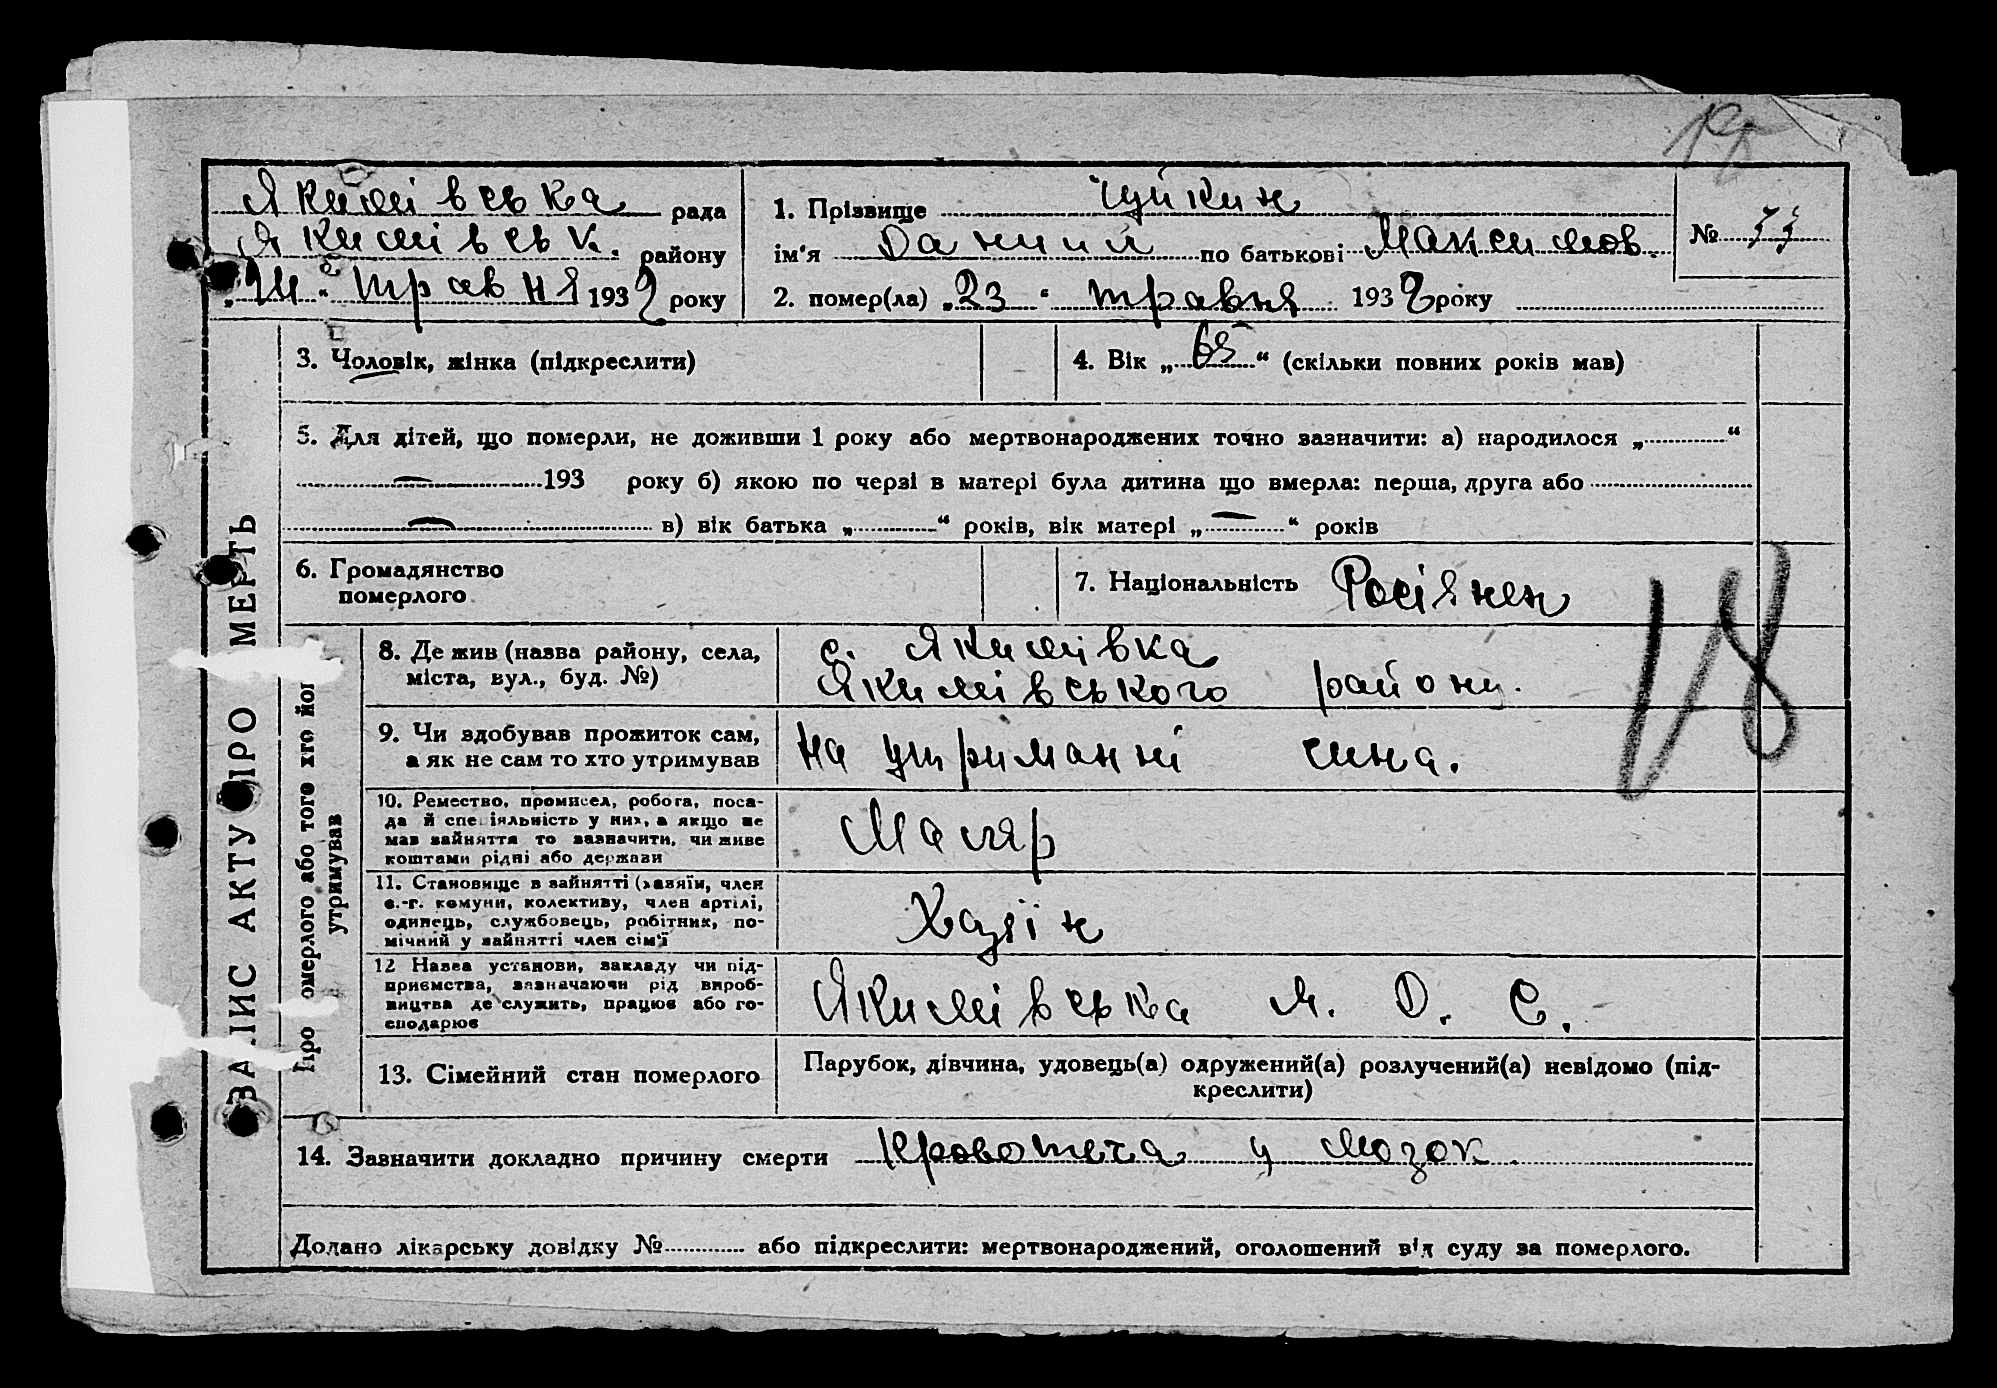 Якимівська рада
Якимівськ. району
„24“ травня 1932 року
1. Прізвище Цуйкин
ім'я Даниил по батькові Максимов.
№ 33
2. помер(ла) „23“ травня 1932 року
ЗАПИС АКТУ ПРО СМЕРТЬ
3. Чоловік, жінка (підкреслити)
4. Вік „65“ (скільки повних років мав)
5. Для дітей, що померли, не доживши 1 року або мертвонароджених точно зазначити: а) народилося „ “
193 року б) якою по черзі в матері була дитина що вмерла: перша, друга або
в) вік батька „ “ років, вік матері „ “ років
6. Громадянство
померлого
7. Національність Росіянен
18
Про померлого або того хто його
утримував
8. Де жив (назва району, села,
міста, вул., буд. №)
с. Якимівка
Якимівського району.
9. Чи здобував прожиток сам,
а як не сам то хто утримував
на утриманні сина.
10. Ремество, промисел, робота, поса-
да й спеціяльність у них, а якщо не
мав зайняття то зазначити, чи живе
коштами рідні або держави
Маляр
11. Становище в зайнятті (хазяїн, член
с.-г. комуни, колективу, член артілі,
одинець, службовець, робітник, по-
мічний у зайнятті член сім'ї
Хазяїн
12 Назва установи, закладу чи під-
приємства, зазначаючи рід вироб-
ництва де служить, працює або го-
сподарює
Якимівська М. Д. С.
13. Сімейний стан померлого
Парубок, дівчина, удовець(а) одружений(а) розлучений(а) невідомо (під-
креслити)
14. Зазначити докладно причину смерти Кровотеча у мозок.
Додано лікарську довідку № або підкреслити: мертвонароджений, оголошений від суду за померлого.